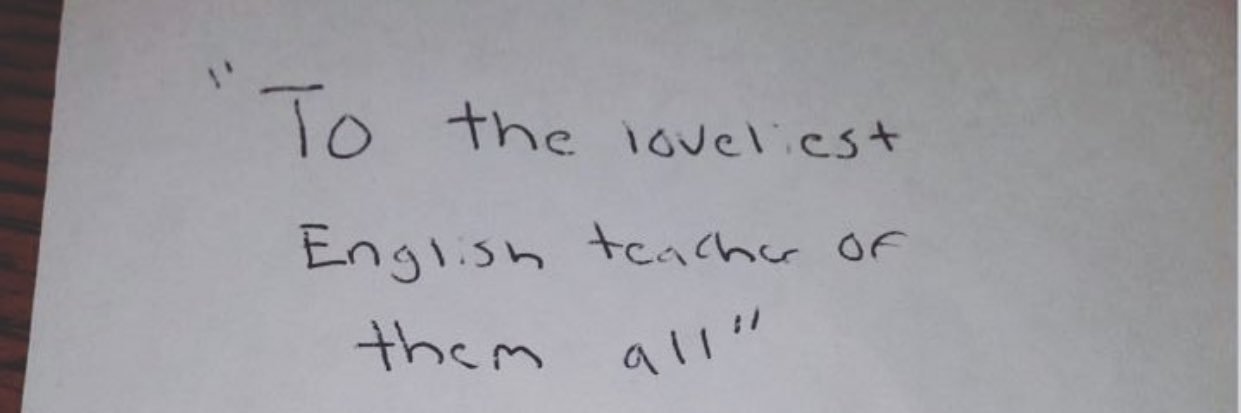 "To the loveliest
English teacher of
them all"